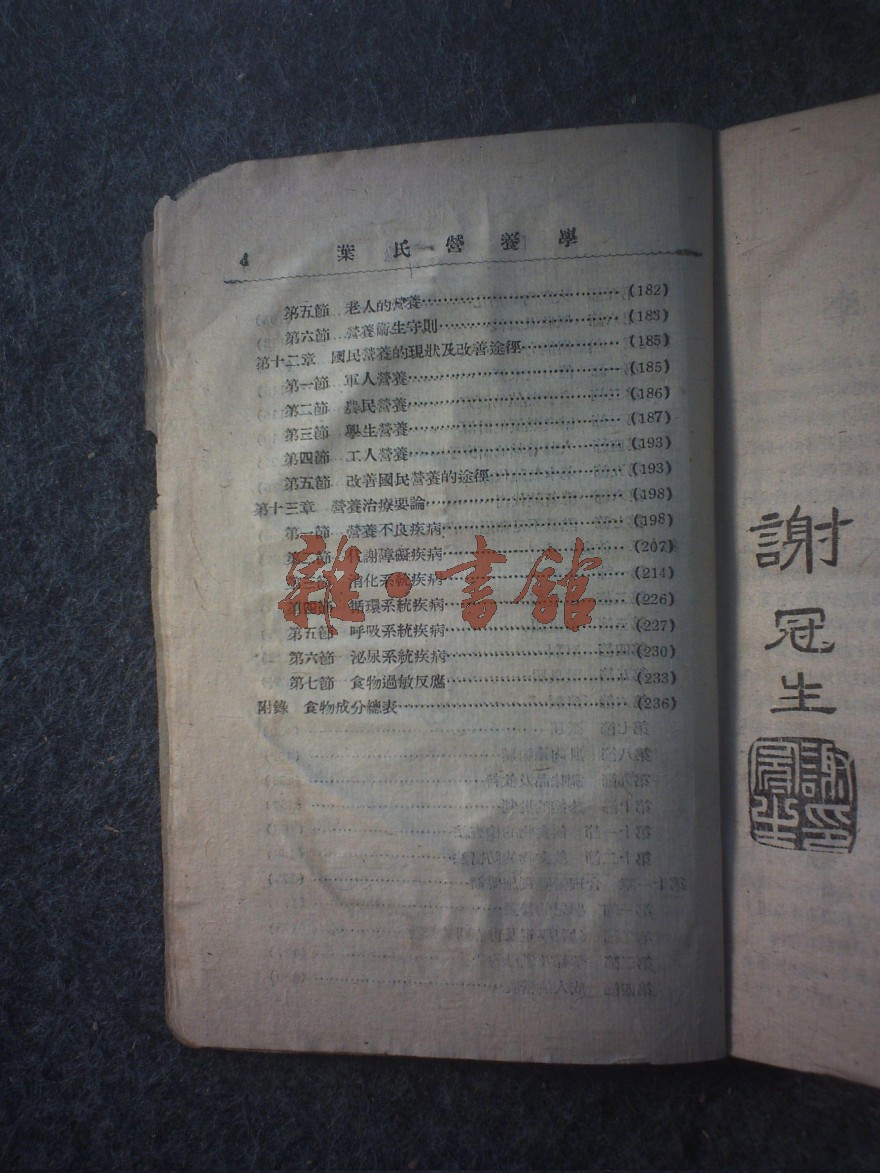 4 葉氏營養學
第五節 老人的營養……………………………(182)
第六節 營養衞生守則……………………………(183)
第十二章 國民營養的現狀及改善途徑……………………(185)
第一節 軍人營養……………………………(185)
第二節 農民營養……………………………(186)
第三節 學生營養……………………………(187)
第四節 工人營養……………………………(193)
第五節 改善國民營養的途徑……………………(193)
第十三章 營養治療要論……………………………(198)
第一節 營養不良疾病……………………………(198)
第二節 代謝障礙疾病……………………………(207)
第三節 消化系統疾病……………………………(214)
第四節 循環系統疾病……………………………(226)
第五節 呼吸系統疾病……………………………(227)
第六節 泌尿系統疾病……………………………(230)
第七節 食物過敏反應……………………………(233)
附錄 食物成分總表……………………………(236)
雜·書館
謝冠生